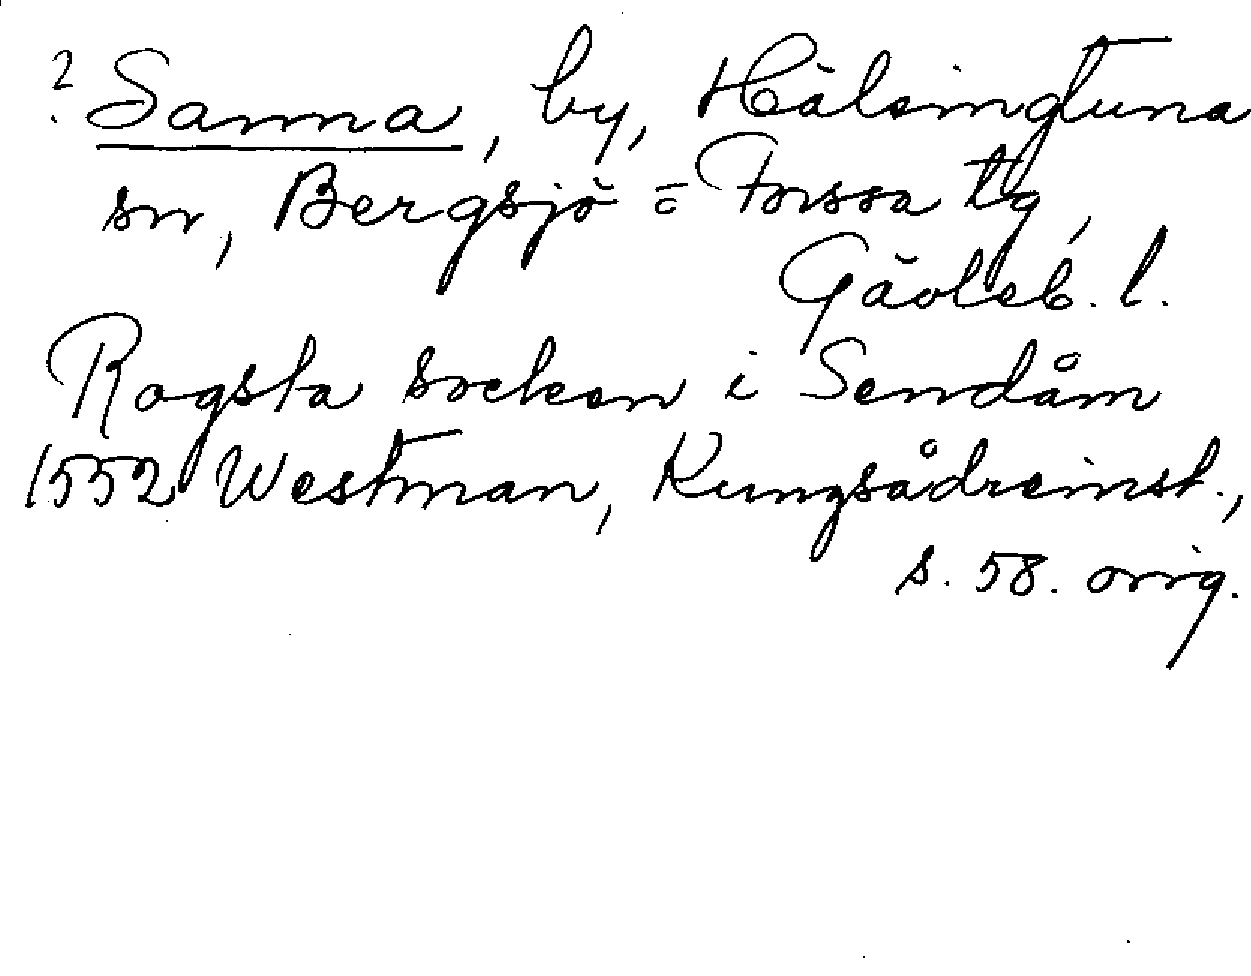 ? Sanna, by, Hälsingtuna
sn, Bergsjö = Forssa tg,
Gävleb. l.
Rogsta socken i Sendåm
1552 Westman, Kungsådreinst.,
s. 58. orig.